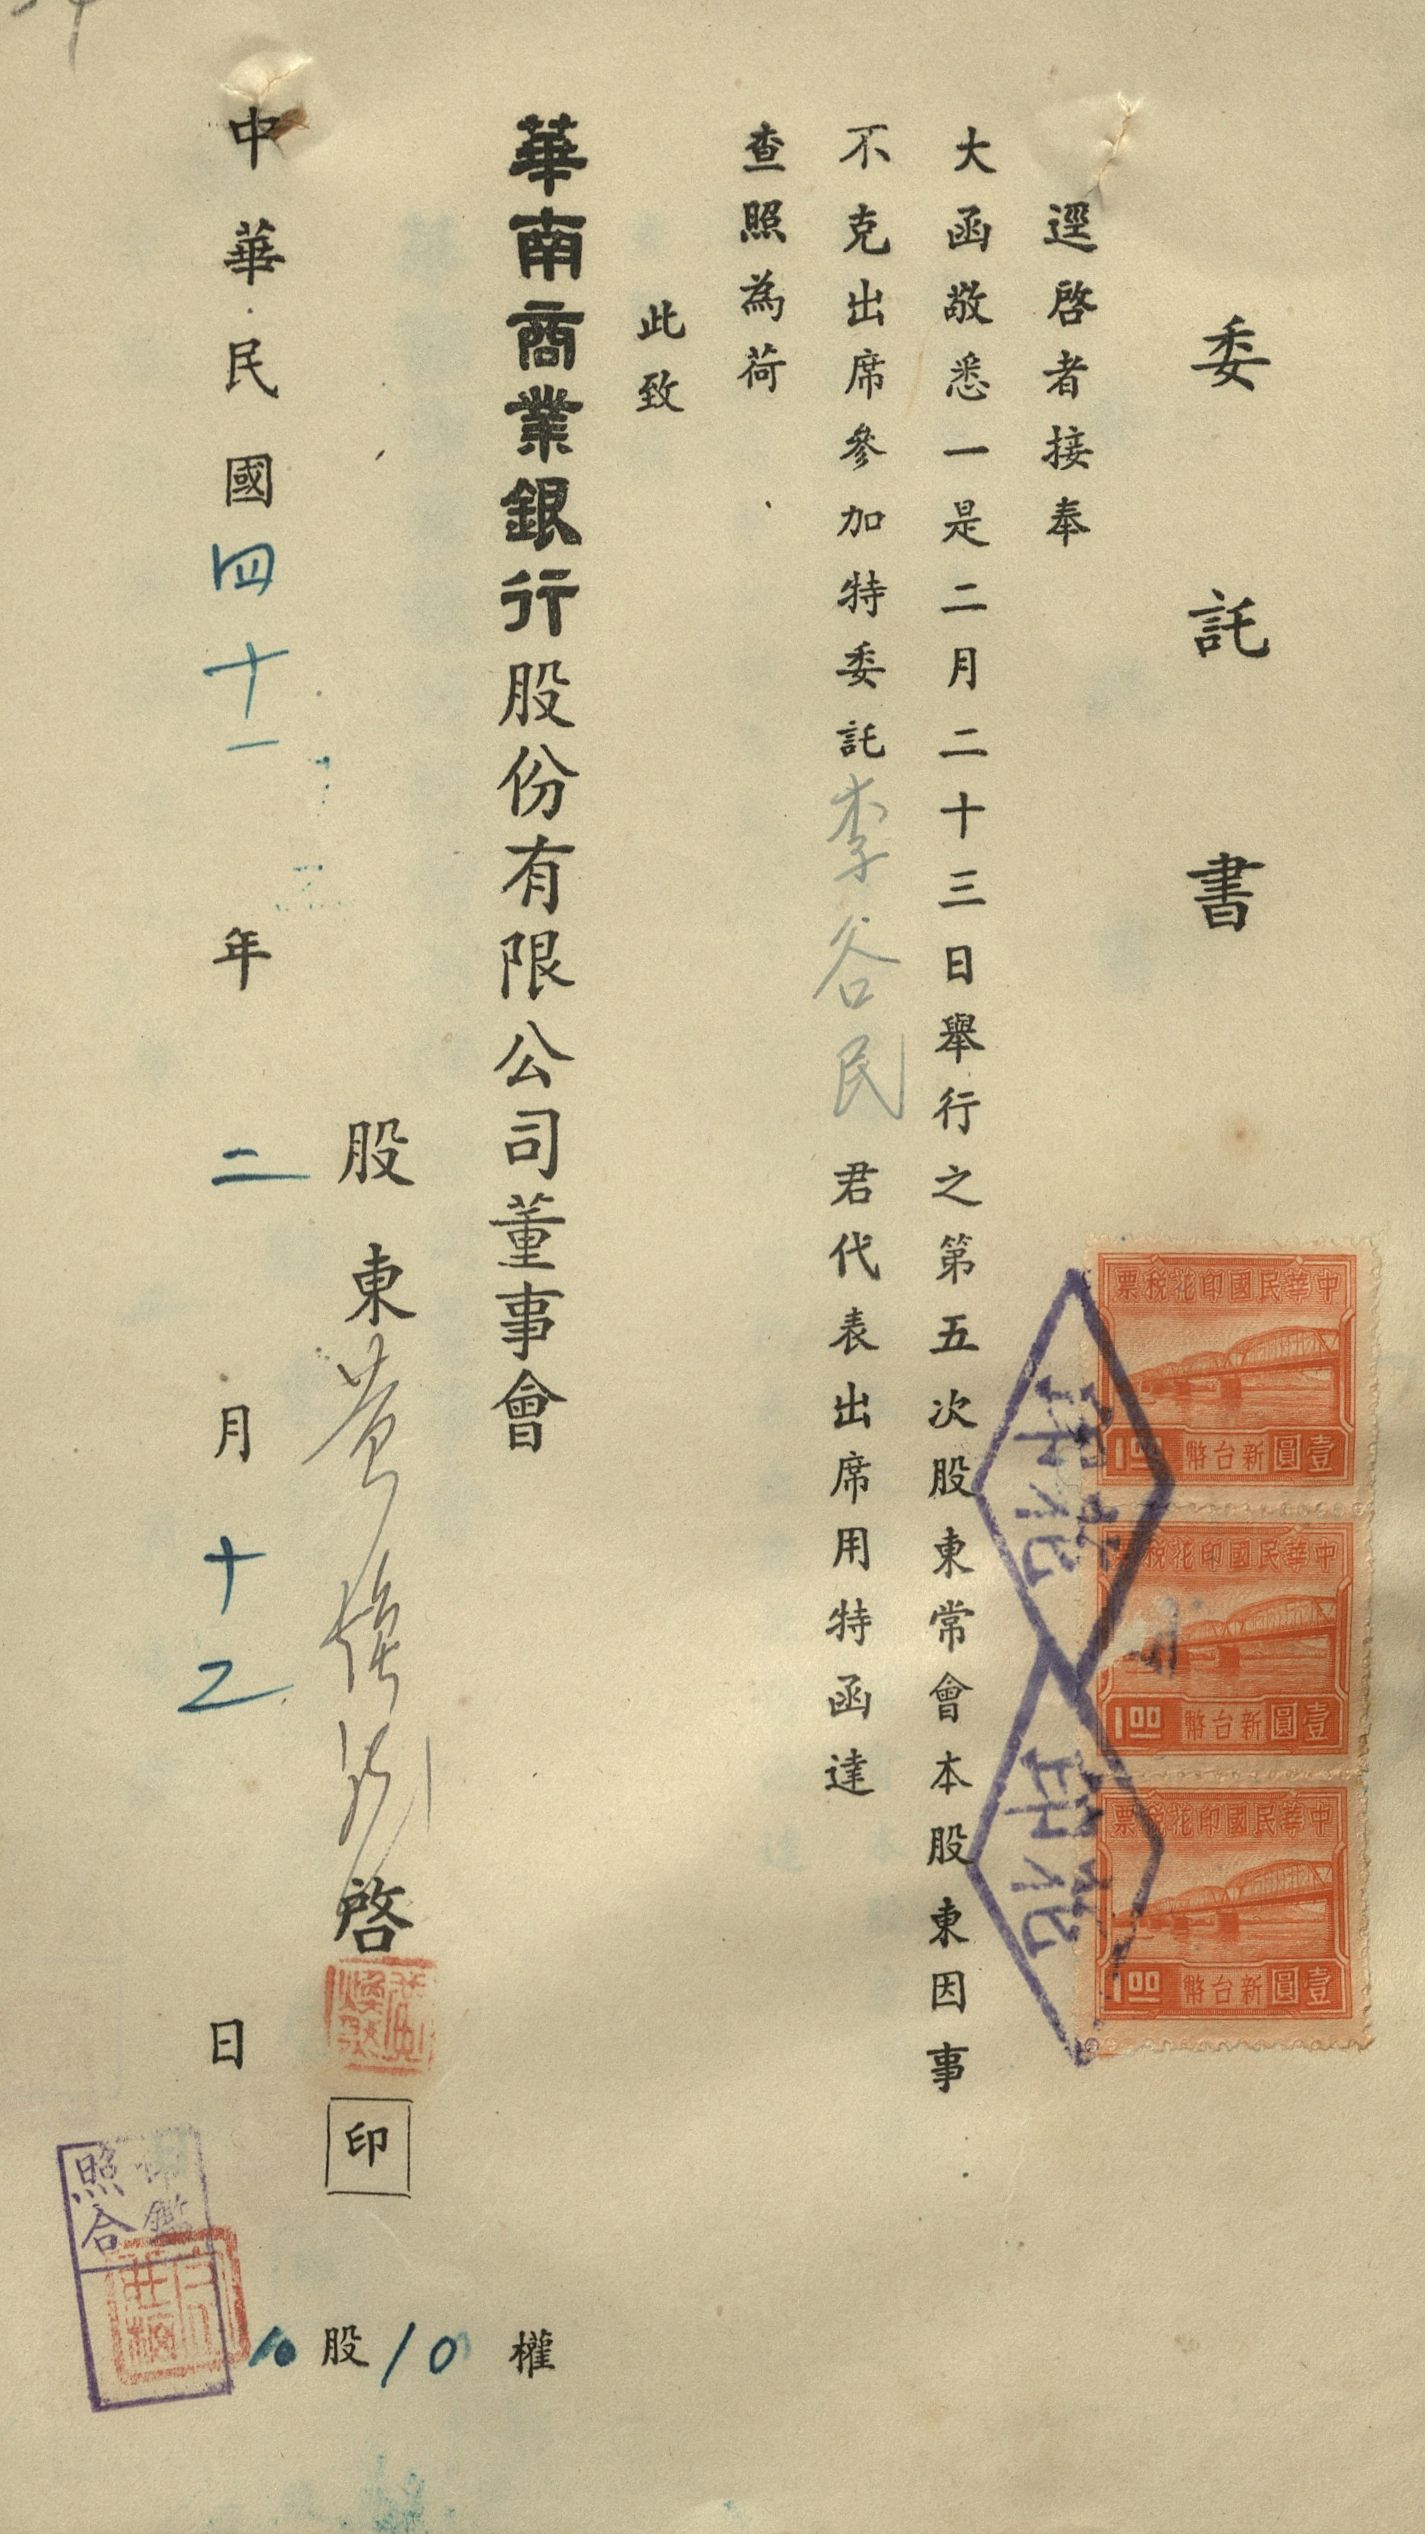 委託書
逕啓者接奉
大函敬悉一是二月二十三日舉行之第五次股東常會本股東因事
不克出席參加特委託李谷民君代表出席用特函達
查照為荷
此致
華南商業銀行股份有限公司董事會
股東黃 啓
印
中華民國四十一年二月十二日
10股10權
中華民國印花稅票
壹圓新台幣
1.00
中華民國印花稅票
壹圓新台幣
1.00
中華民國印花稅票
壹圓新台幣
1.00
印花
印花
印鑑
照合